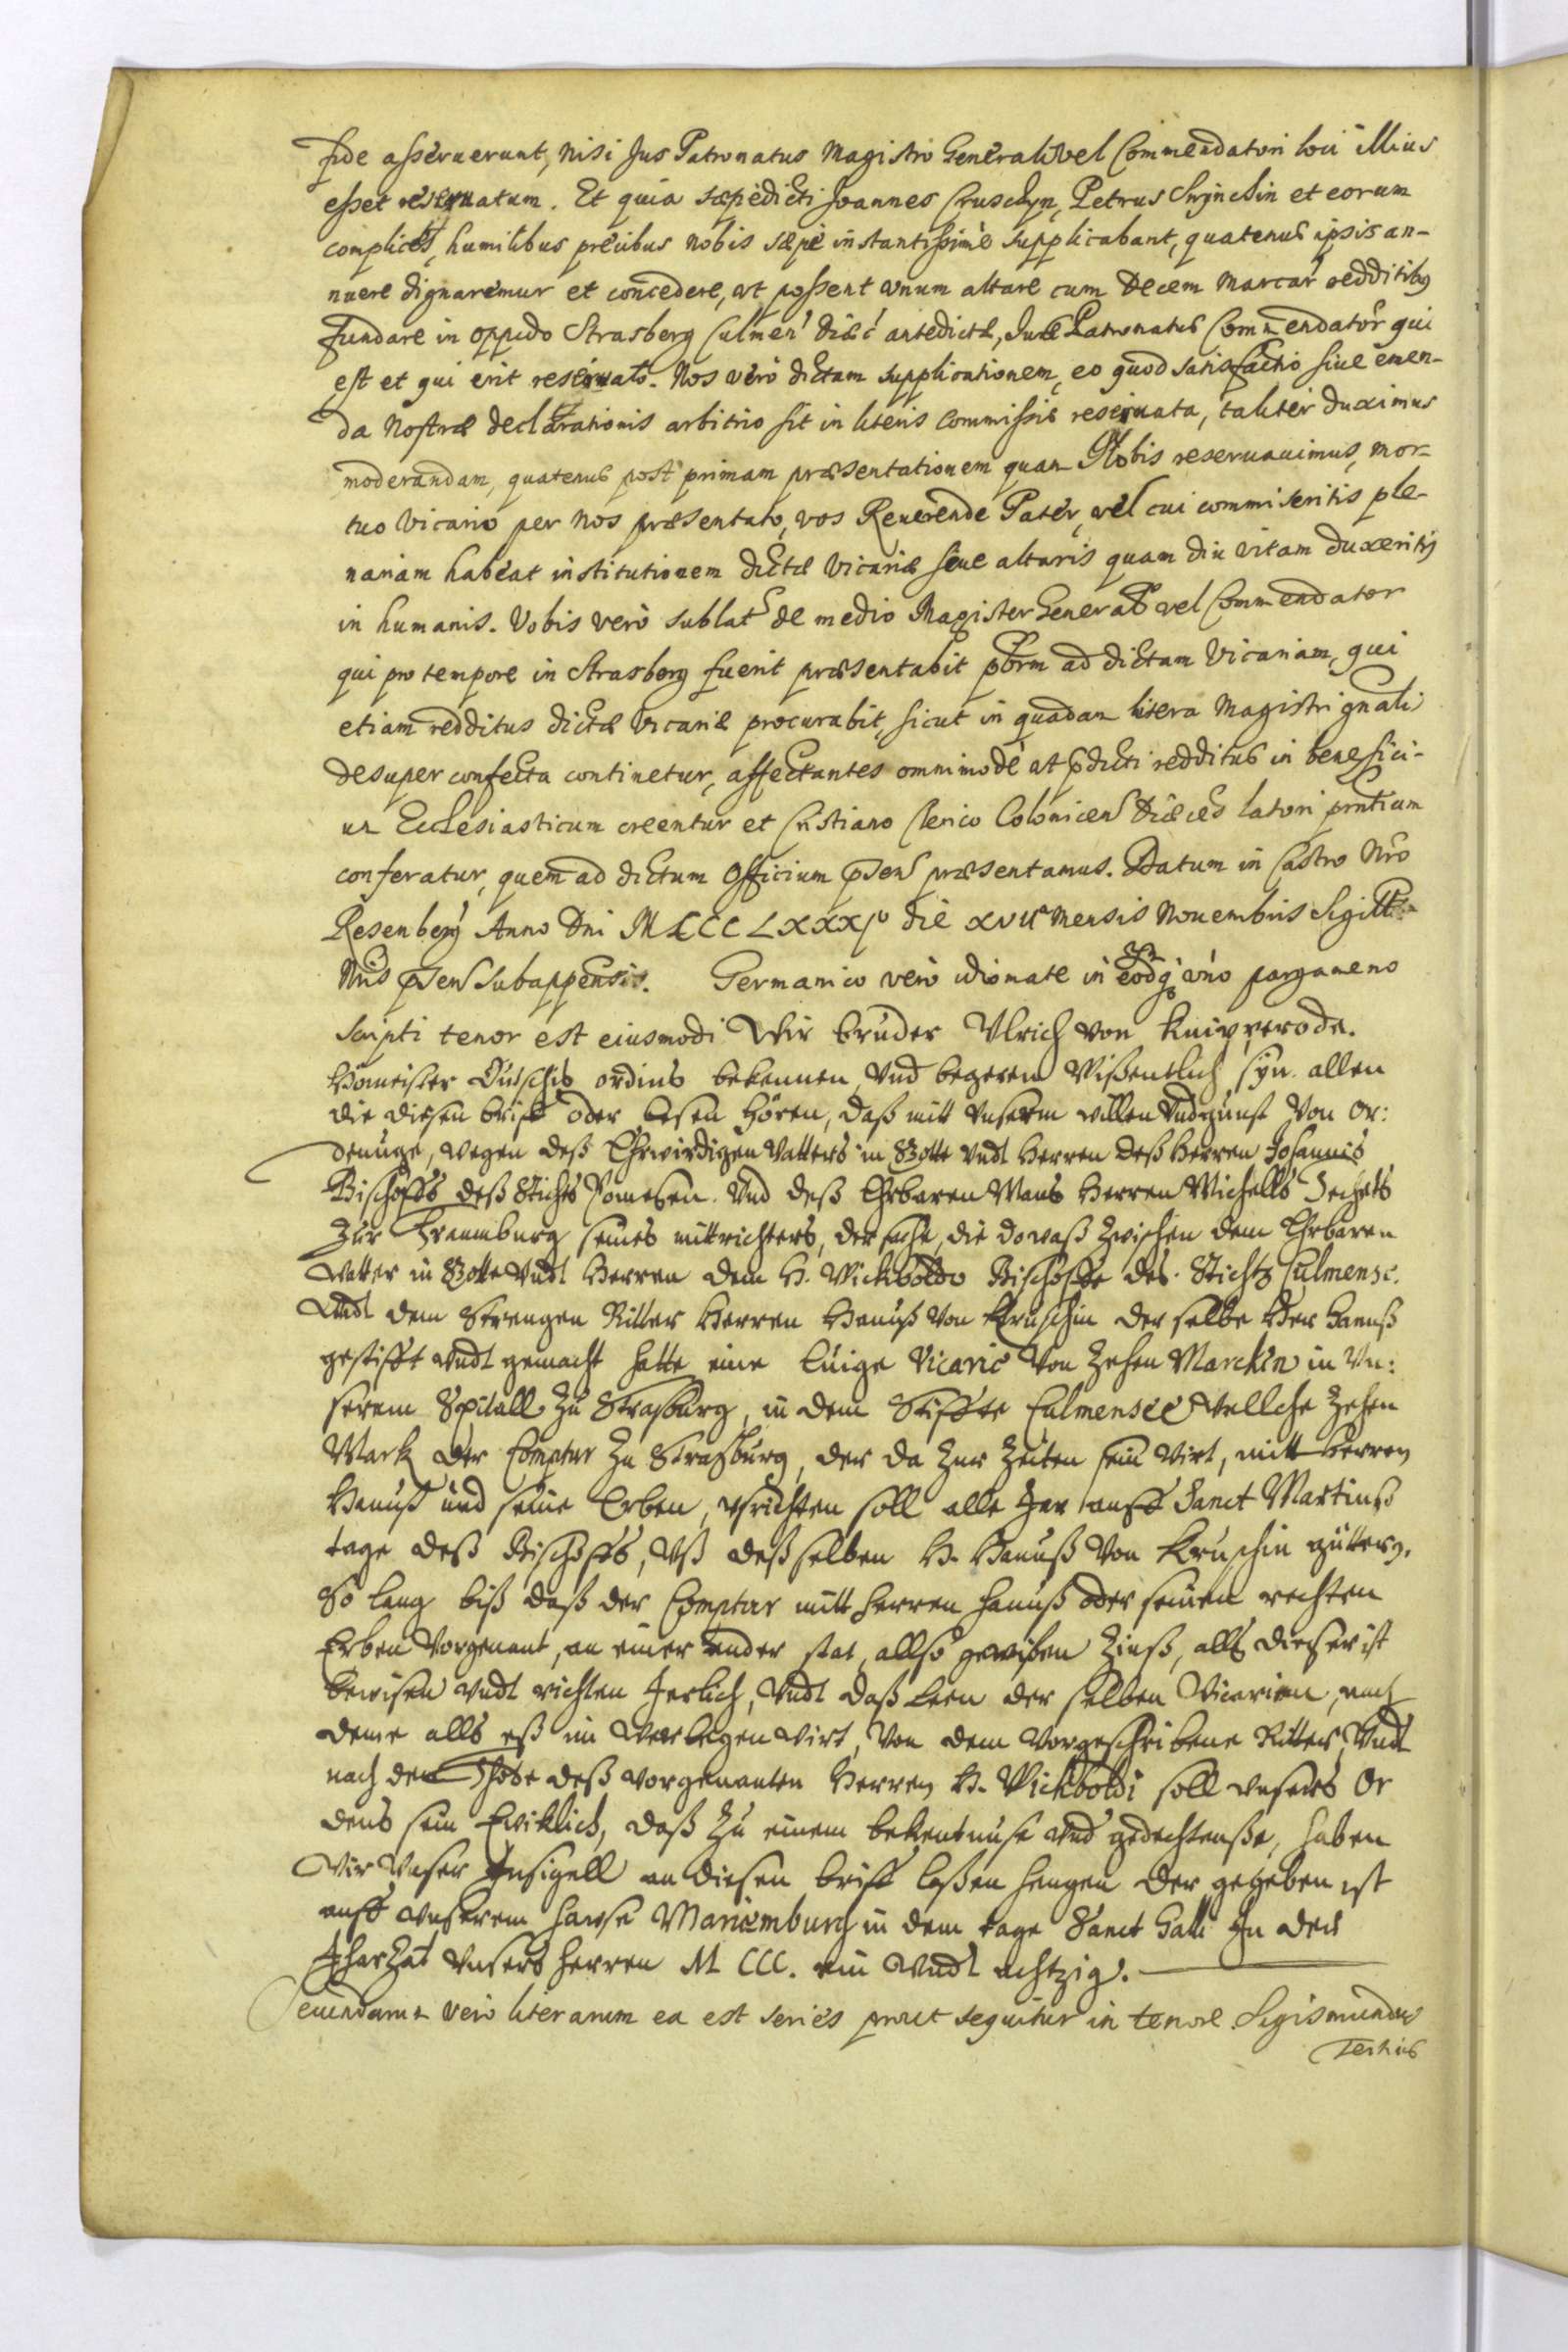 fide asseruerunt, nisi Jus Patronatus Magistro Generali vel Commendatori loci illius
esset reseruatum. Et quia sæpedicti Joannes Cruschyn, Petrus Swynchin et eorum
complices, humilibus precibus nobis sæpe instantissimè supplicabant, quatenus ipsis an-
nuere dignaremur et concedere, vt possent vnum altare cum decem Marcar redditibus
fundare in oppido Strasberg Culmen Diæc antedictæ, Jure Patronatus Commendator qui
est et qui erit reseruato. Nos verò dictam supplicationem, eo quod satisfactio siue emen-
da Nostræ declarationis arbitrio sit in literis commissis reseruata, taliter duximus
moderandam, quatenus post primam præsentationem quam Nobis reseruauimus, mor-
tuo Vicario per Nos præsentato, vos Reuerende Pater, vel cui commiseritis ple-
nariam habeat institutionem dictæ Vicariæ siue altaris quam diu vitam duxeritis
in humanis. Vobis verò sublat de medio Magister General vel Commendator
qui pro tempore in Strasberg fuerit præsentabit pbrm ad dictam Vicariam, qui
etiam redditus dictæ Vicariæ procurabit, sicut in quadam litera Magistri gnali
desuper confecta continetur, affectantes omnimodè vt pdicti redditus in benefici-
um Ecclesiasticum creentur et Cristiano Clerico Colonien Diæces latori pntium
conferatur, quem ad dictum Officium psen præsentamus. Datum in Castro Nro
Resenberg Anno Dni MCCCLXXXIo die XVIIa Mensis Nouembris Sigill
Nris psen subappensis. Germanico verò idiomate in eodq vno pargameno
scripti tenor est eiusmodi Wir bruder Vlrich von Knipperode.
Homeister Dutschis ordins bekennen, vnd begeren Wißentlich syn allen
die diesen briff oder lesen hören, daß mitt vnserm willen vnd gunst Von or:
denunge, wegen deß Ehrwirdigen Vatters in Gotte vndt Herren deß Herren Johannis
Bischoffs deß Stichts Pomezen. Vnd deß Ehrbaren Mans Herren Michells Dechets
zur Fraumburg seines mittrichters, der sache, die do waß zwischen dem Ehrbaren
Vatter in Gotte vndt Herren dem H. Wickboldo Bischoffe des Stichts Culmense.
Vndt dem Strengen Ritter Herren Hanuß von Kruschin der selbe Her Hanuß
gestifft vndt gemacht hatte eine Ewige Vicarie Von zehen Marcken in Vn:
serem Spitall zu Straßburg, in dem Stiffte Culmensee Wellche zehen
Mark der Comptur zu Straßburg, der da zur Zeiten sein wirt, mitt Herren
Hanuß und seine Erben, vsrichten soll alle Jar auff Sanct Martinß
tage deß Bischoffs, vß deßselben H. Hanuß von Kruschin güttern.
So lang biß daß der Comptur mitt Herren Hanuß oder seinen rechten
Erben Vorgenant, an einer ander stat, allso gewißen Zinß, alls dießer ist
bewisen vndt richten Jerlich, Vndt daß Leen der selben Vicarien, nach
deme alls eß im verlegen wirt, Von dem Vorgeschribene Ritter, Vndt
nach dem Thode deß vorgenanten Herren H. Wickboldi soll vnsers Or
dens sein Ewiklich, daß zu einem bekentnuse vnd gedechtenße, haben
Wir Vnser Insigell an diesen briff laßen hengen der gegeben ist
auff vnserem hawse Mariemburg in dem tage Sanct Galli In der
Jharzal vnsers Herren M CCC. ein vndt achtzig.
Secundarum verò literarum ea est series prout sequitur in tenore Sigismundus
Tertius